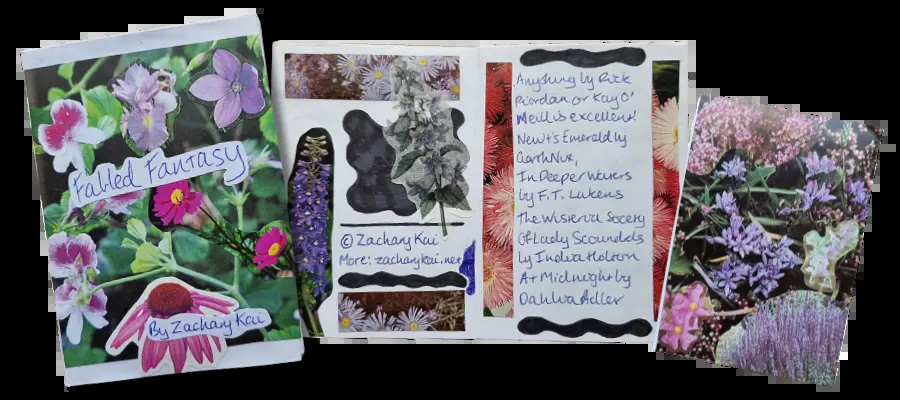 Fabled Fantasy
By Zachary Kai
© Zachary Kai
More: zacharykai.net
Anything by Rick
Riordan or Kay O'
Neill is excellent!
Newt's Emerald by
Garth Nix,
In Deeper Waters
by F.T. Lukens
The Wisteria Society
Of Lady Scoundrels
by India Holton
At Midnight by
Dahlia Adler